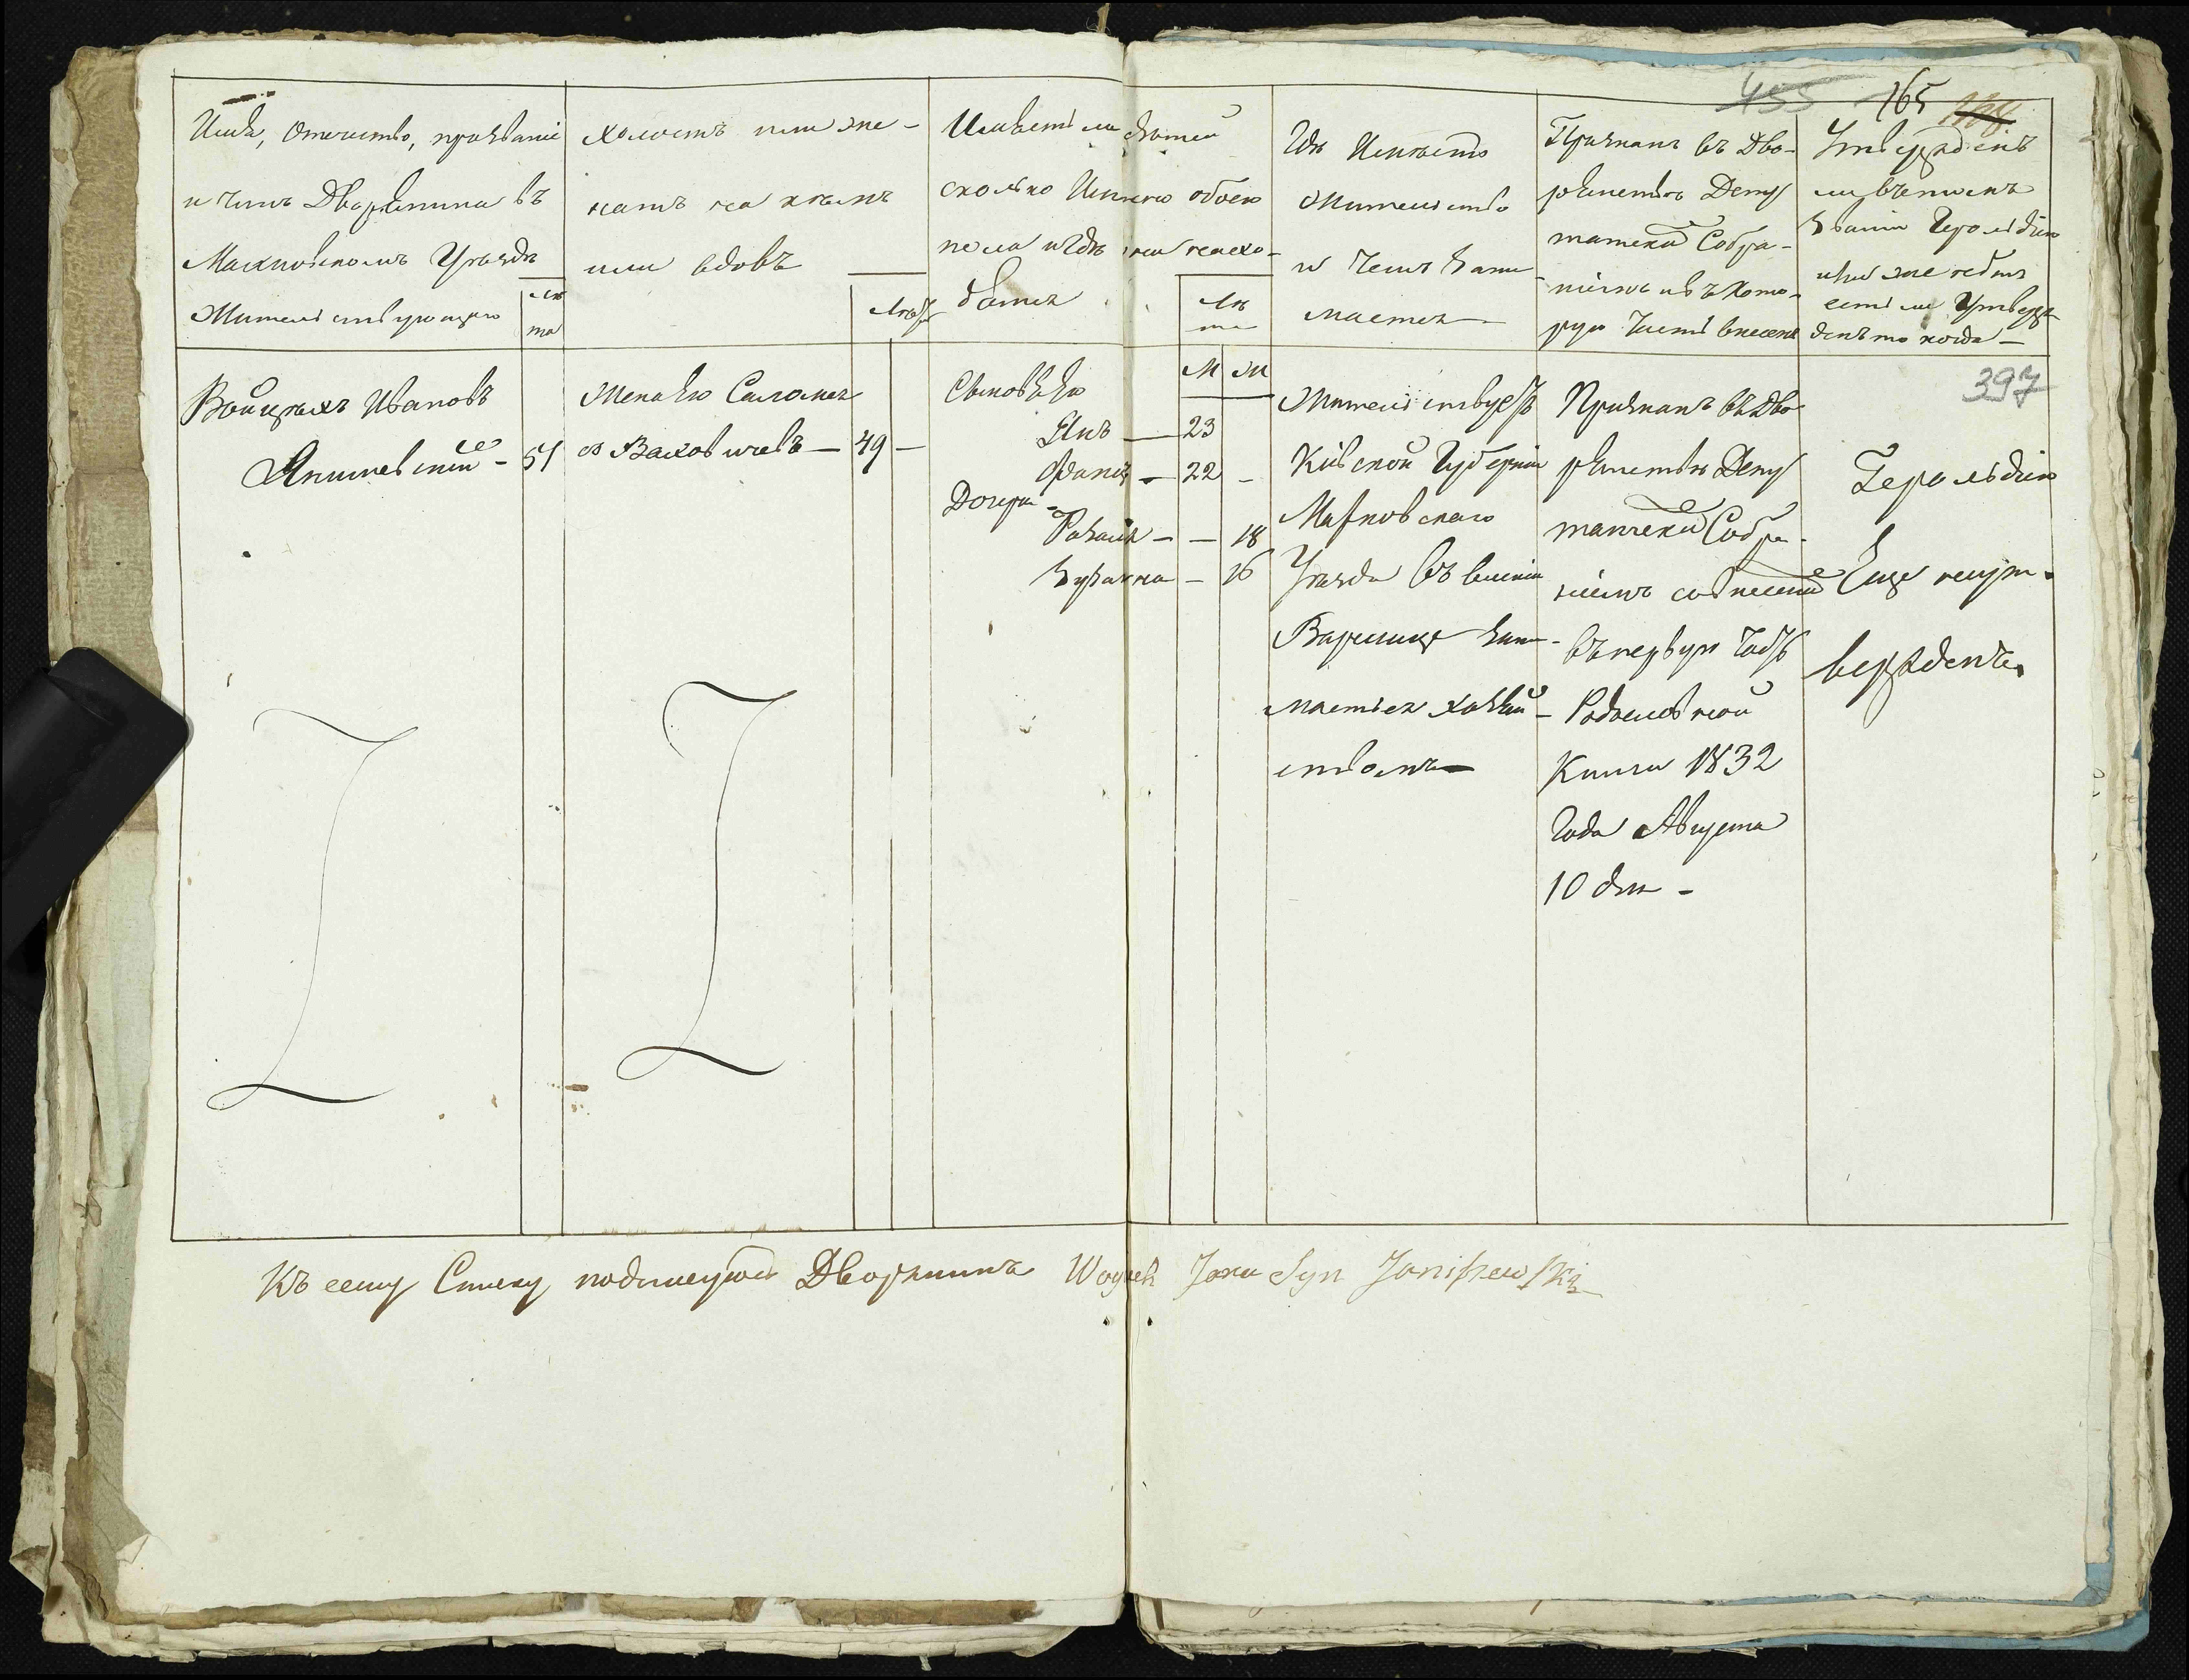 455 165 168
Имя, Отечество, прозваніе
и чинъ Дворянина въ
Махновскомъ Уѣздѣ
Жительствующаго
лѣ
та
холостъ или же-
натъ на комъ
или вдовъ
Лѣта
Имѣетъ ли дѣтей
сколько Именно обоего
пола и гдѣ они нахо-
дятся
Лѣ
та
М Ж
Гдѣ Имѣетъ
Жительство
и чемъ зани-
мается
Признанъ въ Дво-
рянствѣ Депу
татскимъ Собра-
ніемъ и въ кото-
рую часть внесенъ
Утвержденъ
ли въ томъ
званіи Герольдіею
есть ли Утверж
денъ то когда
397
Войцѣхъ Ивановъ
Янишевскій - 51
Женатъ Саломея
Ваховичевъ - 49 -
Сыновья
Янъ - 23
Францъ - 22 -
Дочери -
Розалія - - 18
Зузанна - 16
Жительствуетъ
Кіевской Губерніи
Махновскаго
Уѣзда въ имѣніи
зани-
мается хозяй-
ствомъ
Признанъ въ Дво
рянствѣ Депу
татскимъ Собра-
ніемъ со внесеніемъ
въ первую часть
Родословной
Книги 1832
Года Августа
10 дня -
Герольдіею
Еще неут-
вержденъ.
Къ сему Списку подписуюсь Дворянинъ Woyciech Jana Syn Janiszewski